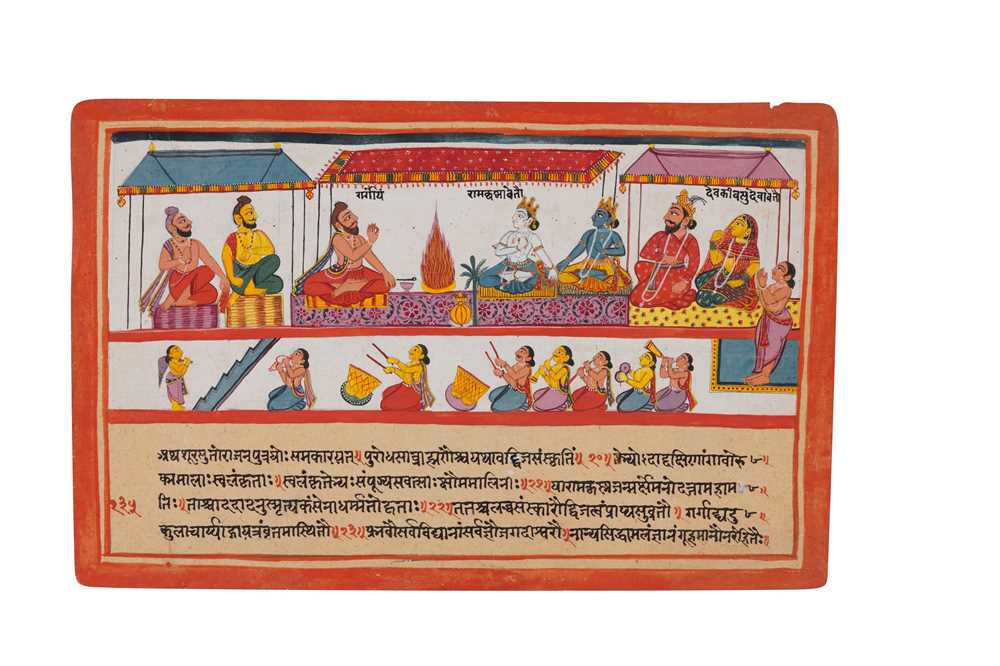 गर्गोयं
रामकृष्णावेतौ
देवकीवसुदेवावेतौ
अथशूरसुतोराजन्पुत्रयोः समकारयत्॥पुरोधसाब्राह्मणैश्चयथावद्द्विजसंस्कृतिं॥२०॥तेभ्योदाद्दक्षिणांगावोरु
क्ममालाःस्वलंकृताः॥स्वलंकृतेभ्यःसंपूज्यसवत्साःक्षौममालिनीः॥२१॥यारामकृष्णजन्मर्क्षेमनोदत्तामहाम
तिः॥ताश्चाददादनुस्मृत्यकंसेनाधर्मतोहृताः॥२२॥ततश्चलब्धसंस्कारौद्विजत्वंप्राप्यसुव्रतौ॥गर्गाद्यदु
२३५
कुलाचार्याद्गायत्रंव्रतमास्थितौ॥२३॥प्रभवौसर्वविद्यानांसर्वज्ञौजगदीश्वरौ॥नान्यसिद्धामलंज्ञानंगूहमानौनरेहितैः॥